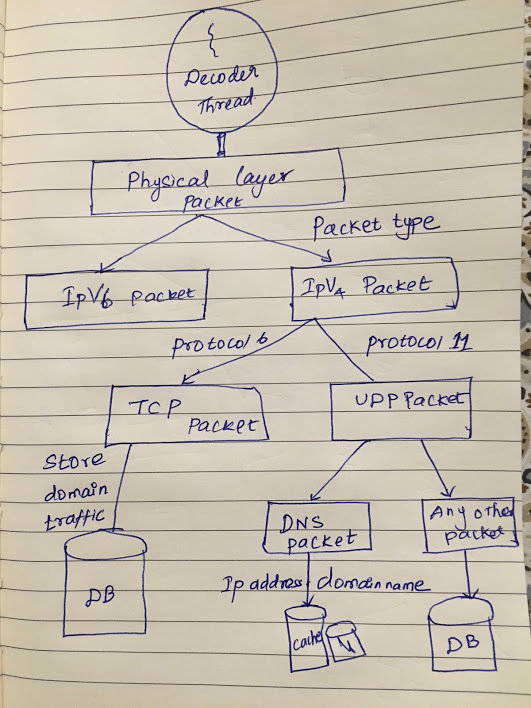 Decoder
Thread
Physical layer
packet
Packet type
IPV6 packet
IPV4 Packet
protocol 6
protocol 11
TCP
packet
UDP Packet
Store
domain
traffic
DNS
packet
Any other
packet
Ip address domain name
DB
cache
DB